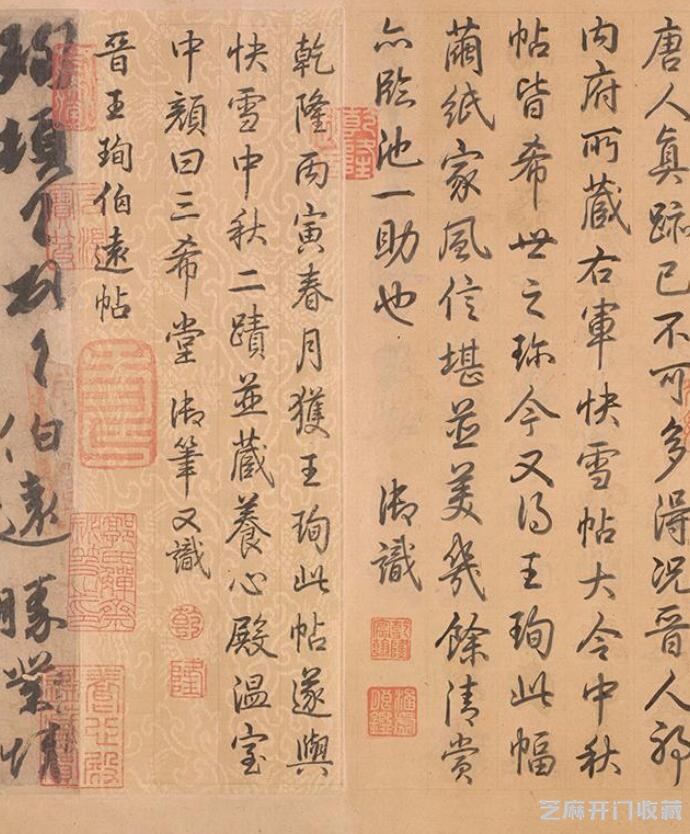 唐人眞跡已不可多得况晉人耶
内府所藏右軍快雪帖大令中秋
帖皆希世之珍今又得王珣此幅
繭紙家風信堪並美幾餘清賞
亦臨池一助也 御識
乾隆丙寅春月獲王珣此帖遂與
快雪中秋二蹟並藏養心殿温室
中顔曰三希堂 御筆又識
乾隆
晉王珣伯遠帖
珣頓首頓首伯遠勝業情
乾隆
芝麻开门收藏